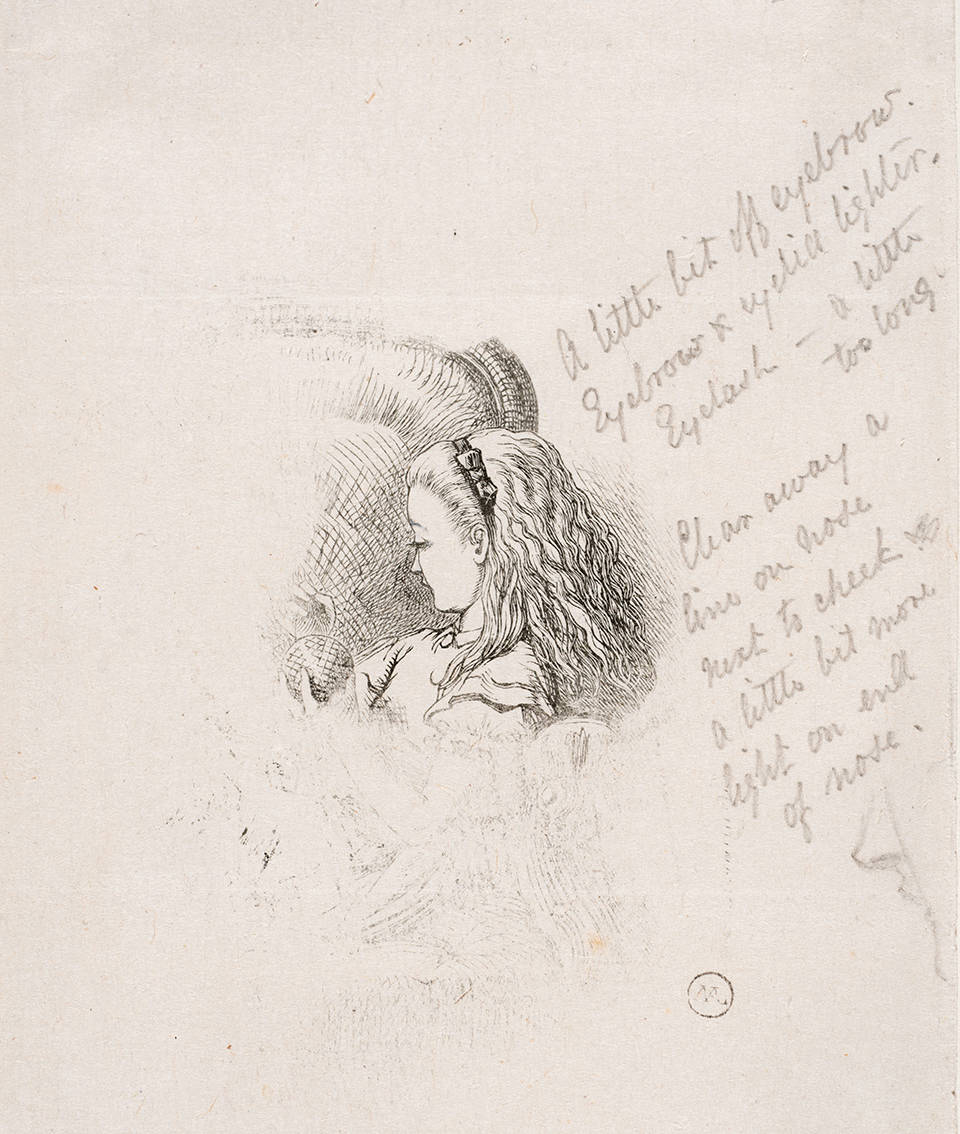 A little bit off eyebrow.
Eyebrow & eyelid lighter.
Eyelash – a little
too long.
Clear away a
line on nose
next to cheek &
a little bit more
light on end
of nose.